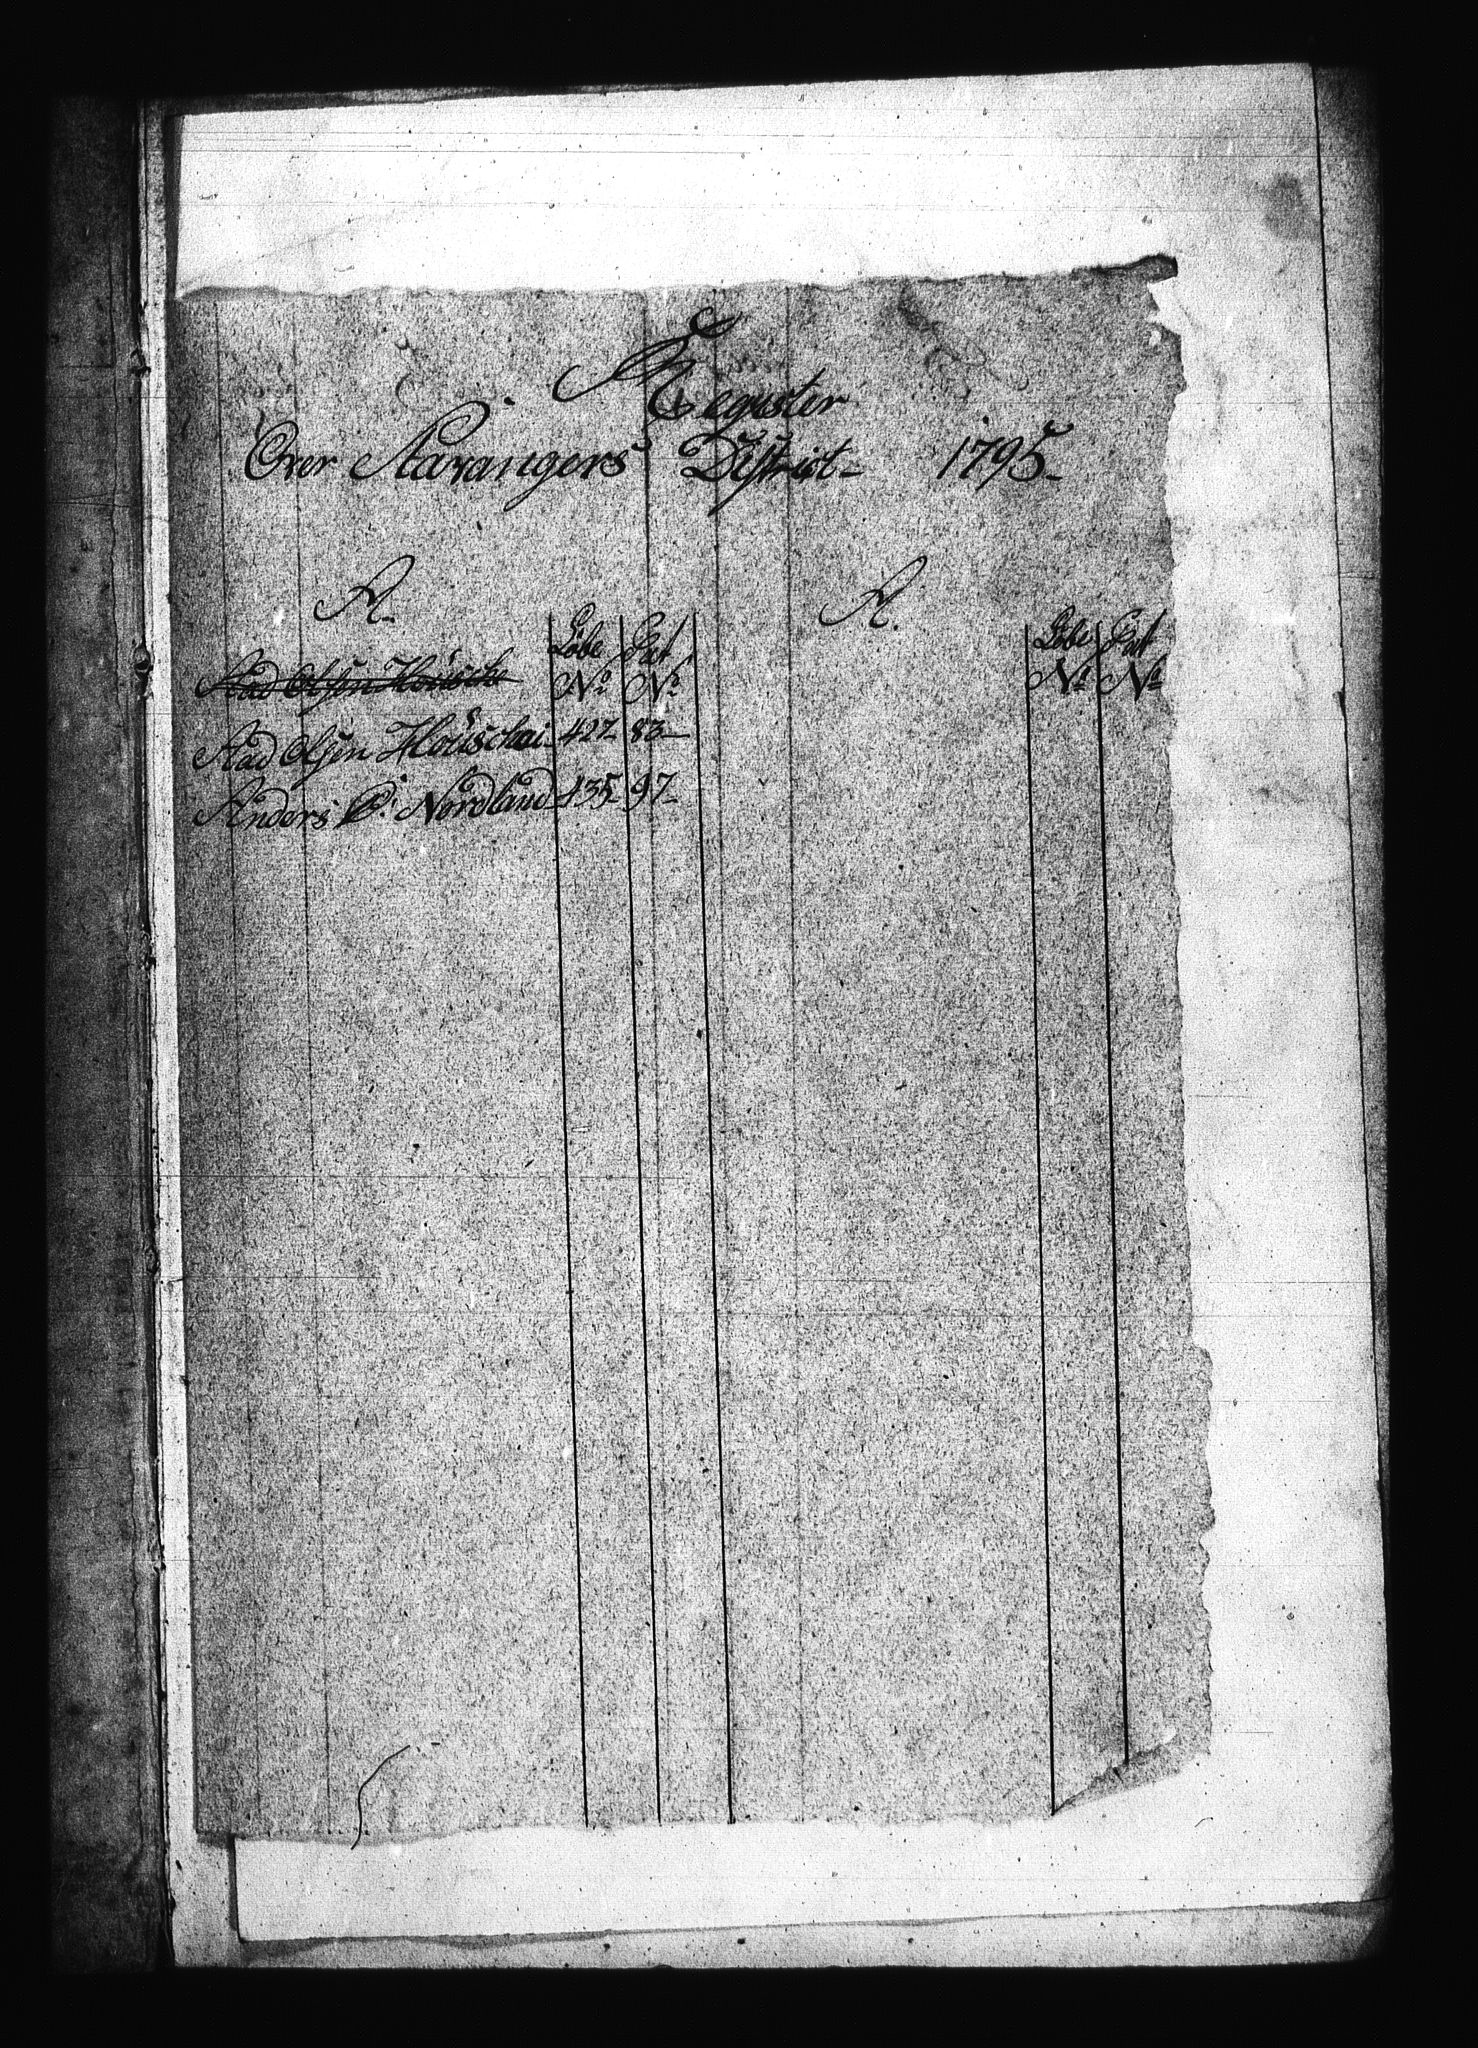 Register
Over Stavangers District 1795
A.
Løbe Pat
No No
Aad Olsen Houschе
Aad Olsen Houschei 427 83
Anders P. Nordland 435 97
A.
Løbe Pat
No No